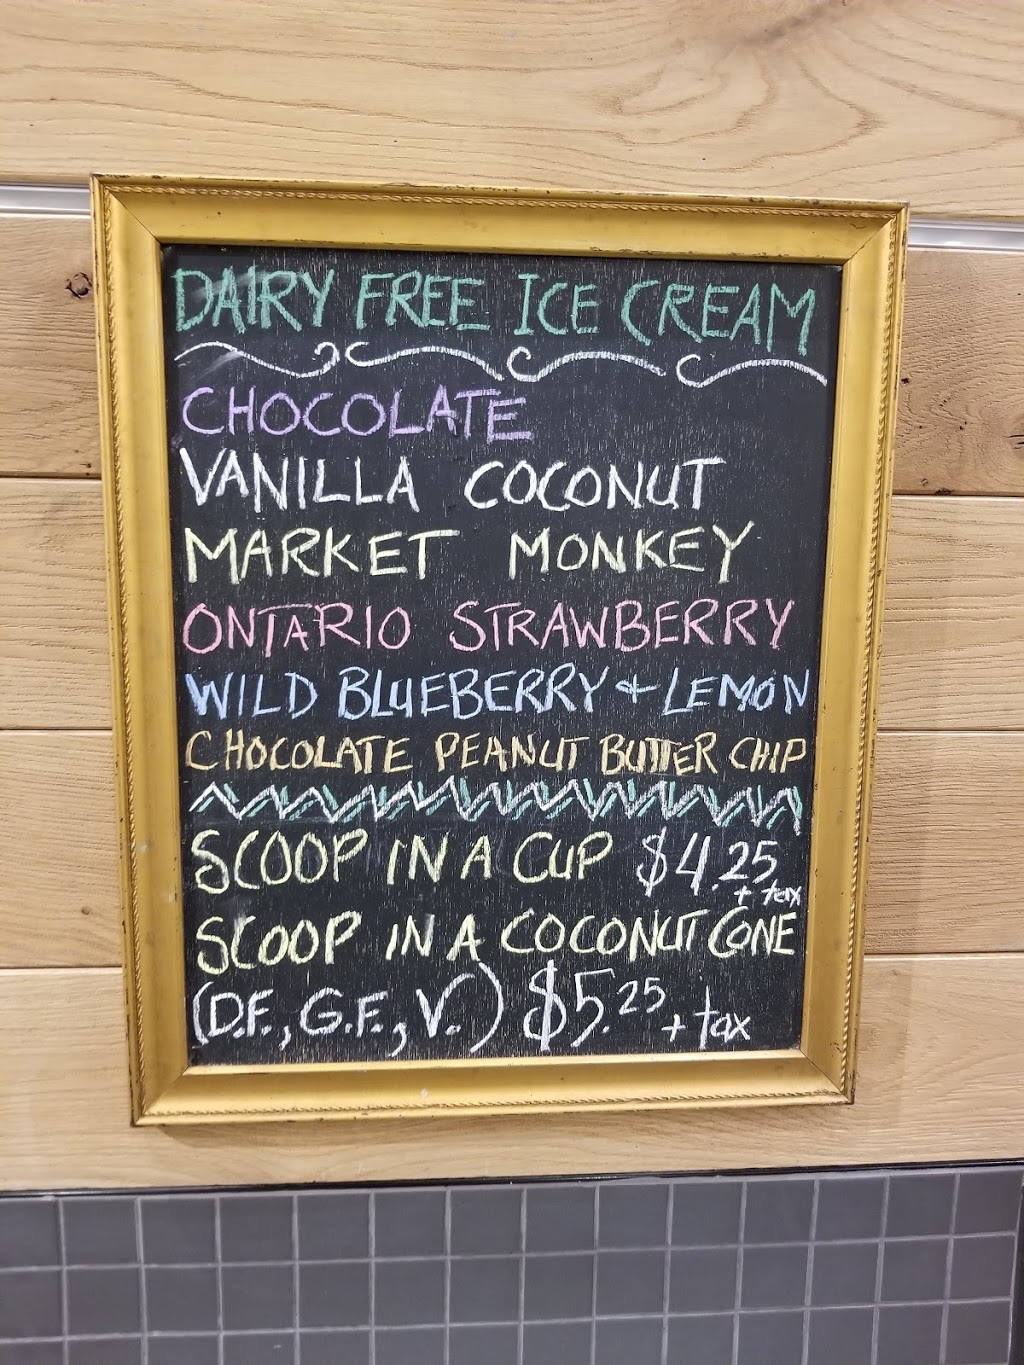 DAIRY FREE ICE CREAM
CHOCOLATE
VANILLA COCONUT
MARKET MONKEY
ONTARIO STRAWBERRY
WILD BLUEBERRY + LEMON
CHOCOLATE PEANUT BUTTER CHIP
SCOOP IN A CUP $4.25 + tax
SCOOP IN A COCONUT CONE
(D.F., G.F., V.) $5.25 + tax